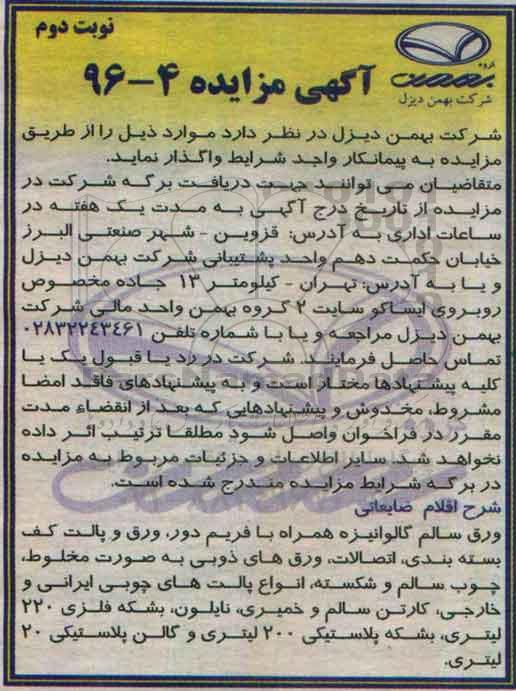 نوبت دوم
گروه
بهمن
شرکت بهمن دیزل
آگهی مزایده ۴-۹۶
شرکت بهمن دیزل در نظر دارد موارد ذیل را از طریق
مزایده به پیمانکار واجد شرایط واگذار نماید.
متقاضیان می توانند جهت دریافت برگه شرکت در
مزایده از تاریخ درج آگهی به مدت یک هفته در
ساعات اداری به آدرس: قزوین - شهر صنعتی البرز
خیابان حکمت دهم واحد پشتیبانی شرکت بهمن دیزل
و یا به آدرس: تهران - کیلومتر ۱۳ جاده مخصوص
روبروی ایساکو سایت ۲ گروه بهمن واحد مالی شرکت
بهمن دیزل مراجعه و یا با شماره تلفن ۰۲۸۳۲۲۴۳۴۶۱
تماس حاصل فرمایند. شرکت در رد یا قبول یک یا
کلیه پیشنهادها مختار است و به پیشنهادهای فاقد امضا
مشروط، مخدوش و پیشنهادهایی که بعد از انقضاء مدت
مقرر در فراخوان واصل شود مطلقا ترتیب اثر داده
نخواهد شد. سایر اطلاعات و جزئیات مربوط به مزایده
در برگه شرایط مزایده مندرج شده است.
شرح اقلام ضایعاتی
ورق سالم گالوانیزه همراه با فریم دور، ورق و پالت کف
بسته بندی، اتصالات، ورق های ذوبی به صورت مخلوط،
چوب سالم و شکسته، انواع پالت های چوبی ایرانی و
خارجی، کارتن سالم و خمیری، نایلون، بشکه فلزی ۲۲۰
لیتری، بشکه پلاستیکی ۲۰۰ لیتری و گالن پلاستیکی ۲۰
لیتری.